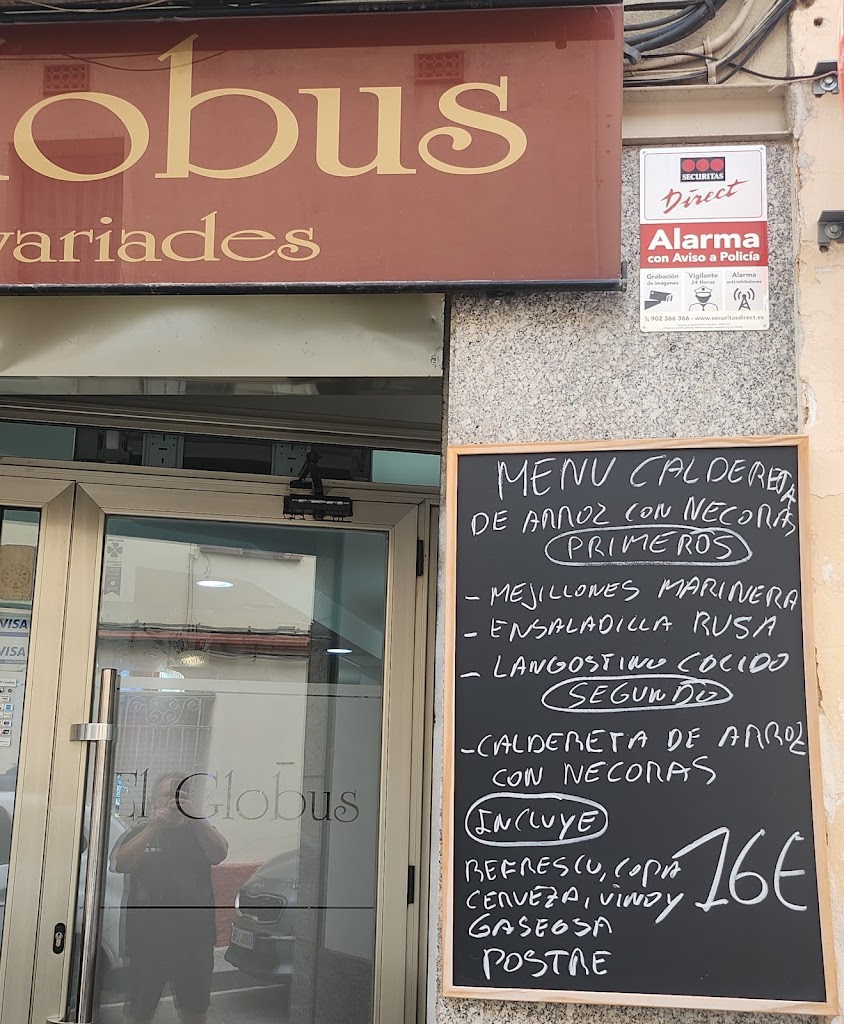 lobus
variades
SECURITAS
Direct
Alarma
con Aviso a Policía
Grabación de imágenes
Vigilante 24 Horas
Alarma anti-inhibidores
902 366 366 - www.securitasdirect.es
MENU CALDERETA
DE ARROZ CON NECORAS
PRIMEROS
- MEJILLONES MARINERA
- ENSALADILLA RUSA
- LANGOSTINO COCIDO
SEGUNDO
- CALDERETA DE ARROZ
CON NECORAS
INCLUYE
REFRESCO, COPA
CERVEZA, VINO Y
GASEOSA
POSTRE
16€
VISA
VISA
El Globus